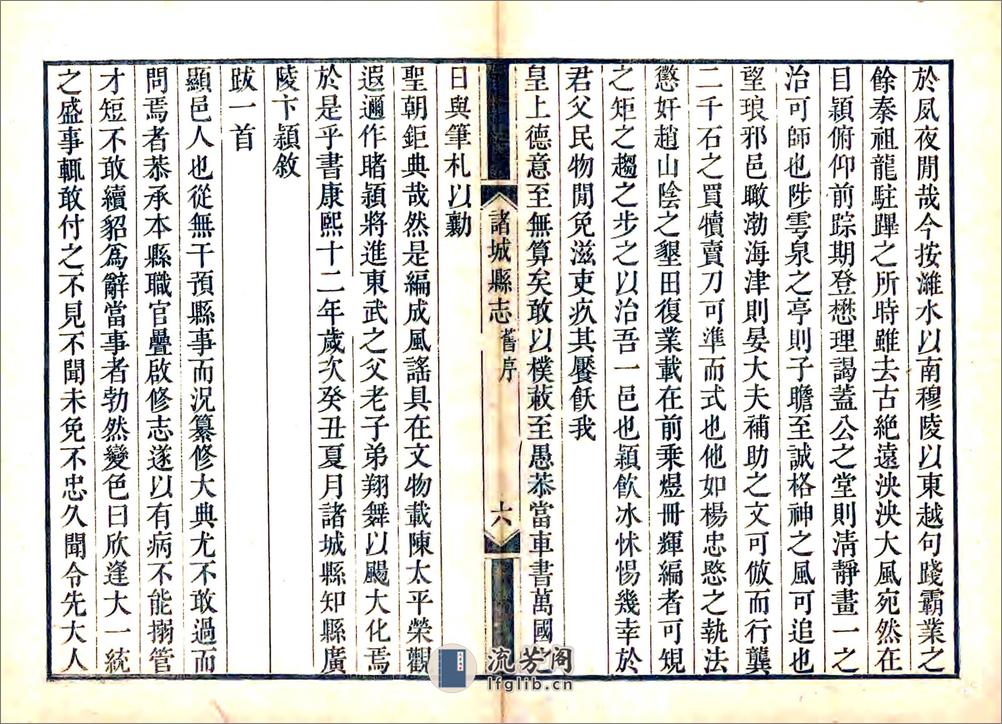 於夙夜閒哉今按濰水以南穆陵以東越句踐霸業之
餘秦祖龍駐蹕之所時雖去古絶遠泱泱大風宛然在
目穎俯仰前踪期登懋理謁蓋公之堂則淸靜畫一之
治可師也陟雩泉之亭則子瞻至誠格神之風可追也
望琅邪邑瞰渤海津則晏大夫補助之文可倣而行龔
二千石之買犢賣刀可準而式也他如楊忠愍之執法
懲奸趙山陰之墾田復業載在前乘煜冊輝編者可規
之矩之趨之步之以治吾一邑也穎飮冰怵惕幾幸於
君父民物閒免滋吏疚其饜飫我
皇上德意至無算矣敢以樸蔌至愚恭當車書萬國
諸城縣志 舊序 六
日與筆札以勷
聖朝鉅典哉然是編成風謠具在文物載陳太平榮觀
遐邇作睹穎將進東武之父老子弟翔舞以颺大化焉
於是乎書康熙十二年歲次癸丑夏月諸城縣知縣廣
陵卞穎敘
跋一首
顯邑人也從無干預縣事而況纂修大典尤不敢過而
問焉者恭承本縣職官疊啟修志遂以有病不能搦管
才短不敢續貂爲辭當事者勃然變色曰欣逢大一統
之盛事輒敢付之不見不聞未免不忠久聞令先大人
流芳阁
lfglib.cn